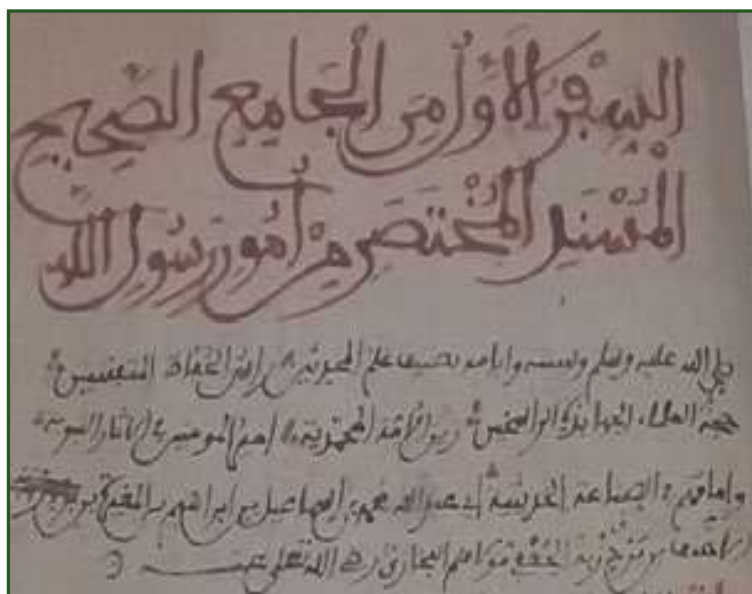 السِّفْرُ الأَوَّلُ مِنَ الْجَامِعِ الصَّحِيحِ
الْمُسْنَدِ الْمُخْتَصَرِ مِنْ أُمُورِ رَسُولِ اللَّهِ
صلى الله عليه وسلم وسننه وأيامه تصنيف علم المحدثين رأس الحفاظ المتقنين
حجة العلماء الجهابذة الراسخين الأمة المحمدية أمير المومنين في الآثار النبوية
وإمامهم في الصناعة الحديثية أبي عبد الله محمد بن إسماعيل بن إبراهيم بن المغيرة بن
الجعفي البخاري رضي الله تعلى عنه